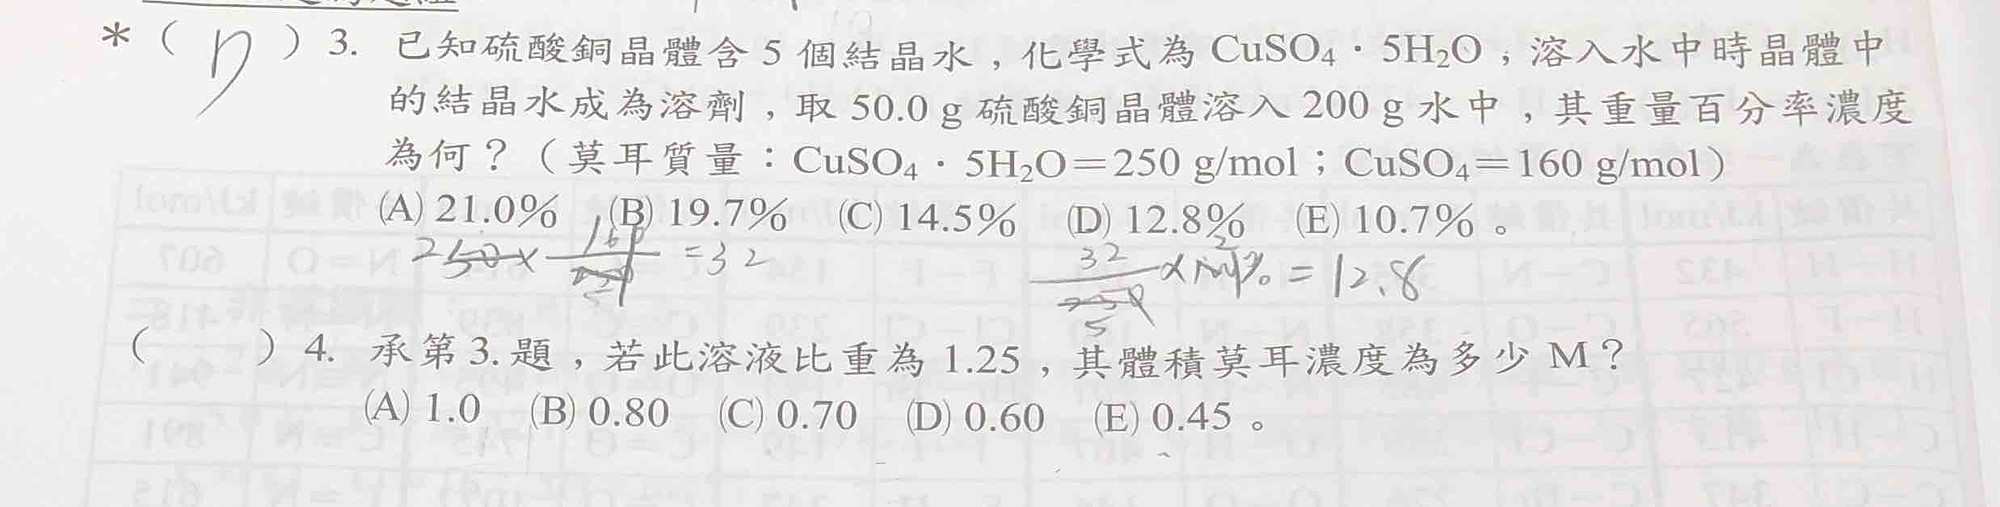 *（D）3. 已知硫酸銅晶體含 5 個結晶水，化學式為 CuSO₄．5H₂O，溶入水中時晶體中
的結晶水成為溶劑，取 50.0 g 硫酸銅晶體溶入 200 g 水中，其重量百分率濃度
為何？（莫耳質量：CuSO₄．5H₂O＝250 g/mol；CuSO₄＝160 g/mol）
(A) 21.0%　(B) 19.7%　(C) 14.5%　(D) 12.8%　(E) 10.7%。
50 × 160/250 = 32　32/250 × 100% = 12.8
（　）4. 承第 3. 題，若此溶液比重為 1.25，其體積莫耳濃度為多少 M？
(A) 1.0　(B) 0.80　(C) 0.70　(D) 0.60　(E) 0.45。